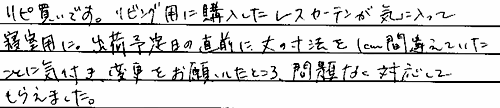 リピ買いです。リビング用に購入したレースカーテンが気に入って
寝室用に。出荷予定日の直前に丈の寸法を1cm間違えていた
ことに気付き変更をお願いしたところ、問題なく対応して
もらえました。